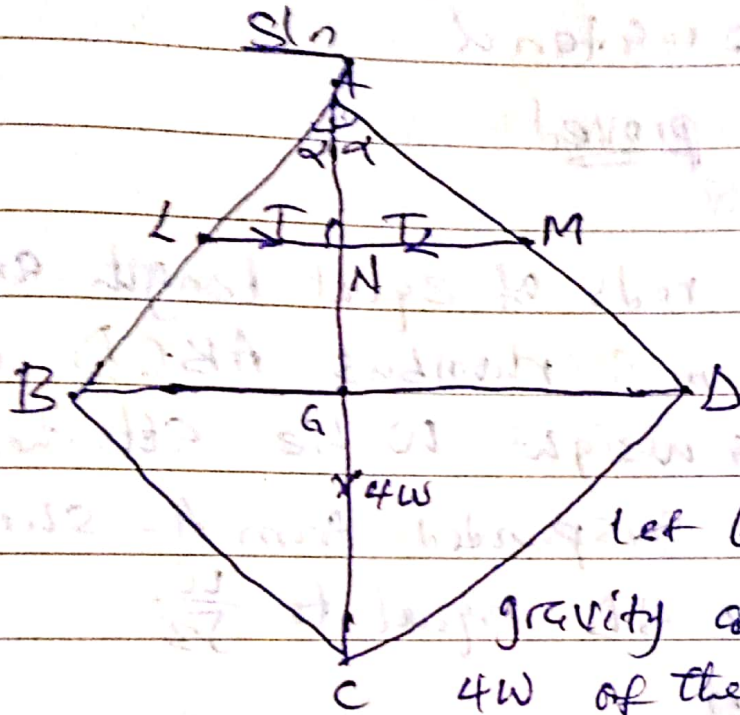 Sln
A
α α
L T T M
N
B G D
4W
let
gravity
C 4W of the